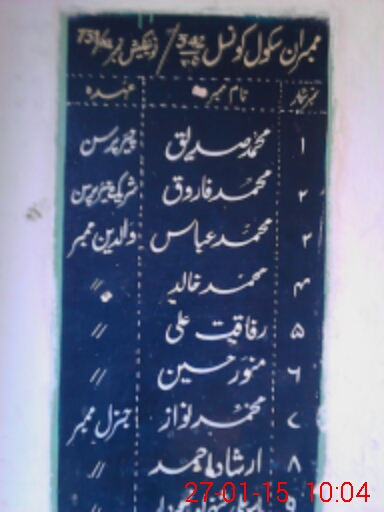 ممبران سکول کونسل
نمبر شمار نام ممبر عہدہ
۱ محمد صدیق چیئر پرسن
۲ محمد فاروق شریک چیئر پرسن
۳ محمد عباس والدین ممبر
۴ محمد خالد 〃
۵ رفاقت علی 〃
۶ منور حسین 〃
۷ محمد نواز جنرل ممبر
۸ ارشاد احمد 〃
۹
27-01-15 10:04